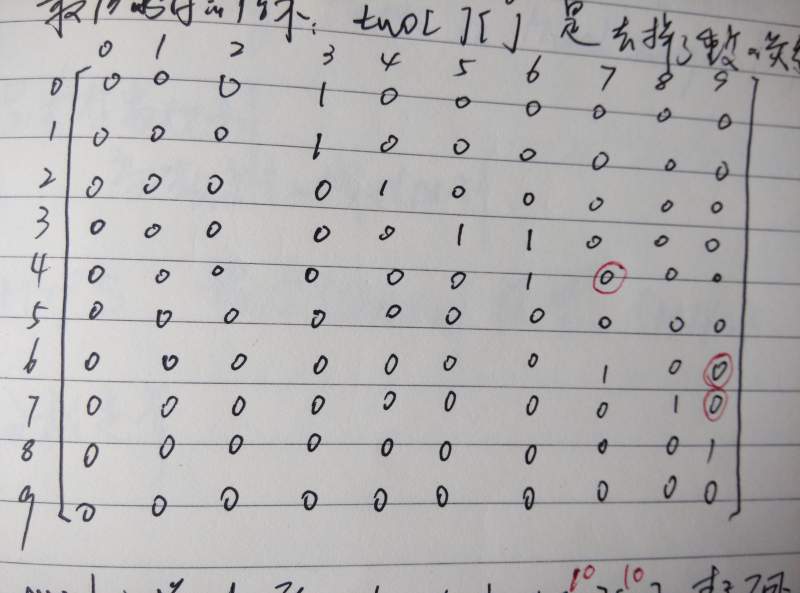 示: two[ ][ ] 是去掉了
0 1 2 3 4 5 6 7 8 9
0 0 0 0 1 0 0 0 0 0 0
1 0 0 0 1 0 0 0 0 0 0
2 0 0 0 0 1 0 0 0 0 0
3 0 0 0 0 0 1 1 0 0 0
4 0 0 0 0 0 0 1 0 0 0
5 0 0 0 0 0 0 0 0 0 0
6 0 0 0 0 0 0 0 1 0 0
7 0 0 0 0 0 0 0 0 1 0
8 0 0 0 0 0 0 0 0 0 1
9 0 0 0 0 0 0 0 0 0 0
10 10